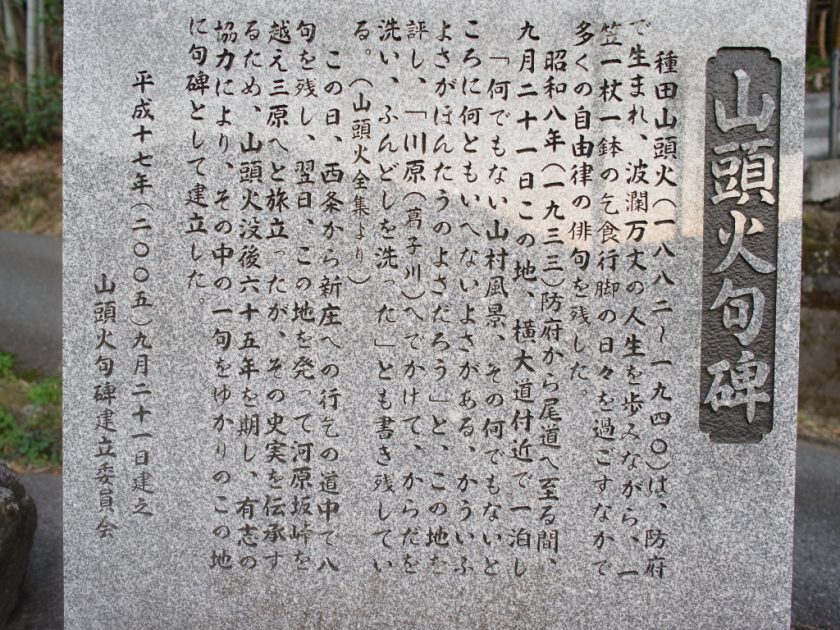 山頭火句碑
種田山頭火(一八八二〜一九四〇)は、防府
で生まれ、波瀾万丈の人生を歩みながら、一
笠一杖一鉢の乞食行脚の日々を過ごすなかで
多くの自由律の俳句を残した。
昭和八年(一九三三)防府から尾道へ至る間、
九月二十一日この地、横大道付近で一泊し
「何でもない山村風景、その何でもないと
ころに何ともいへないよさがある、かういふ
よさがほんたうのよさだろう」と、この地を
評し、「川原(葛子川)へでかけて、からだを
洗い、ふんどしを洗った」とも書き残してい
る。(山頭火全集より)
この日、西条から新庄への行乞の道中で八
句を残し、翌日、この地を発って河原坂峠を
越え三原へと旅立ったが、その史実を伝承す
るため、山頭火没後六十五年を期し、有志の
協力により、その中の一句をゆかりのこの地
に句碑として建立した。
平成十七年(二〇〇五)九月二十一日建之
山頭火句碑建立委員会